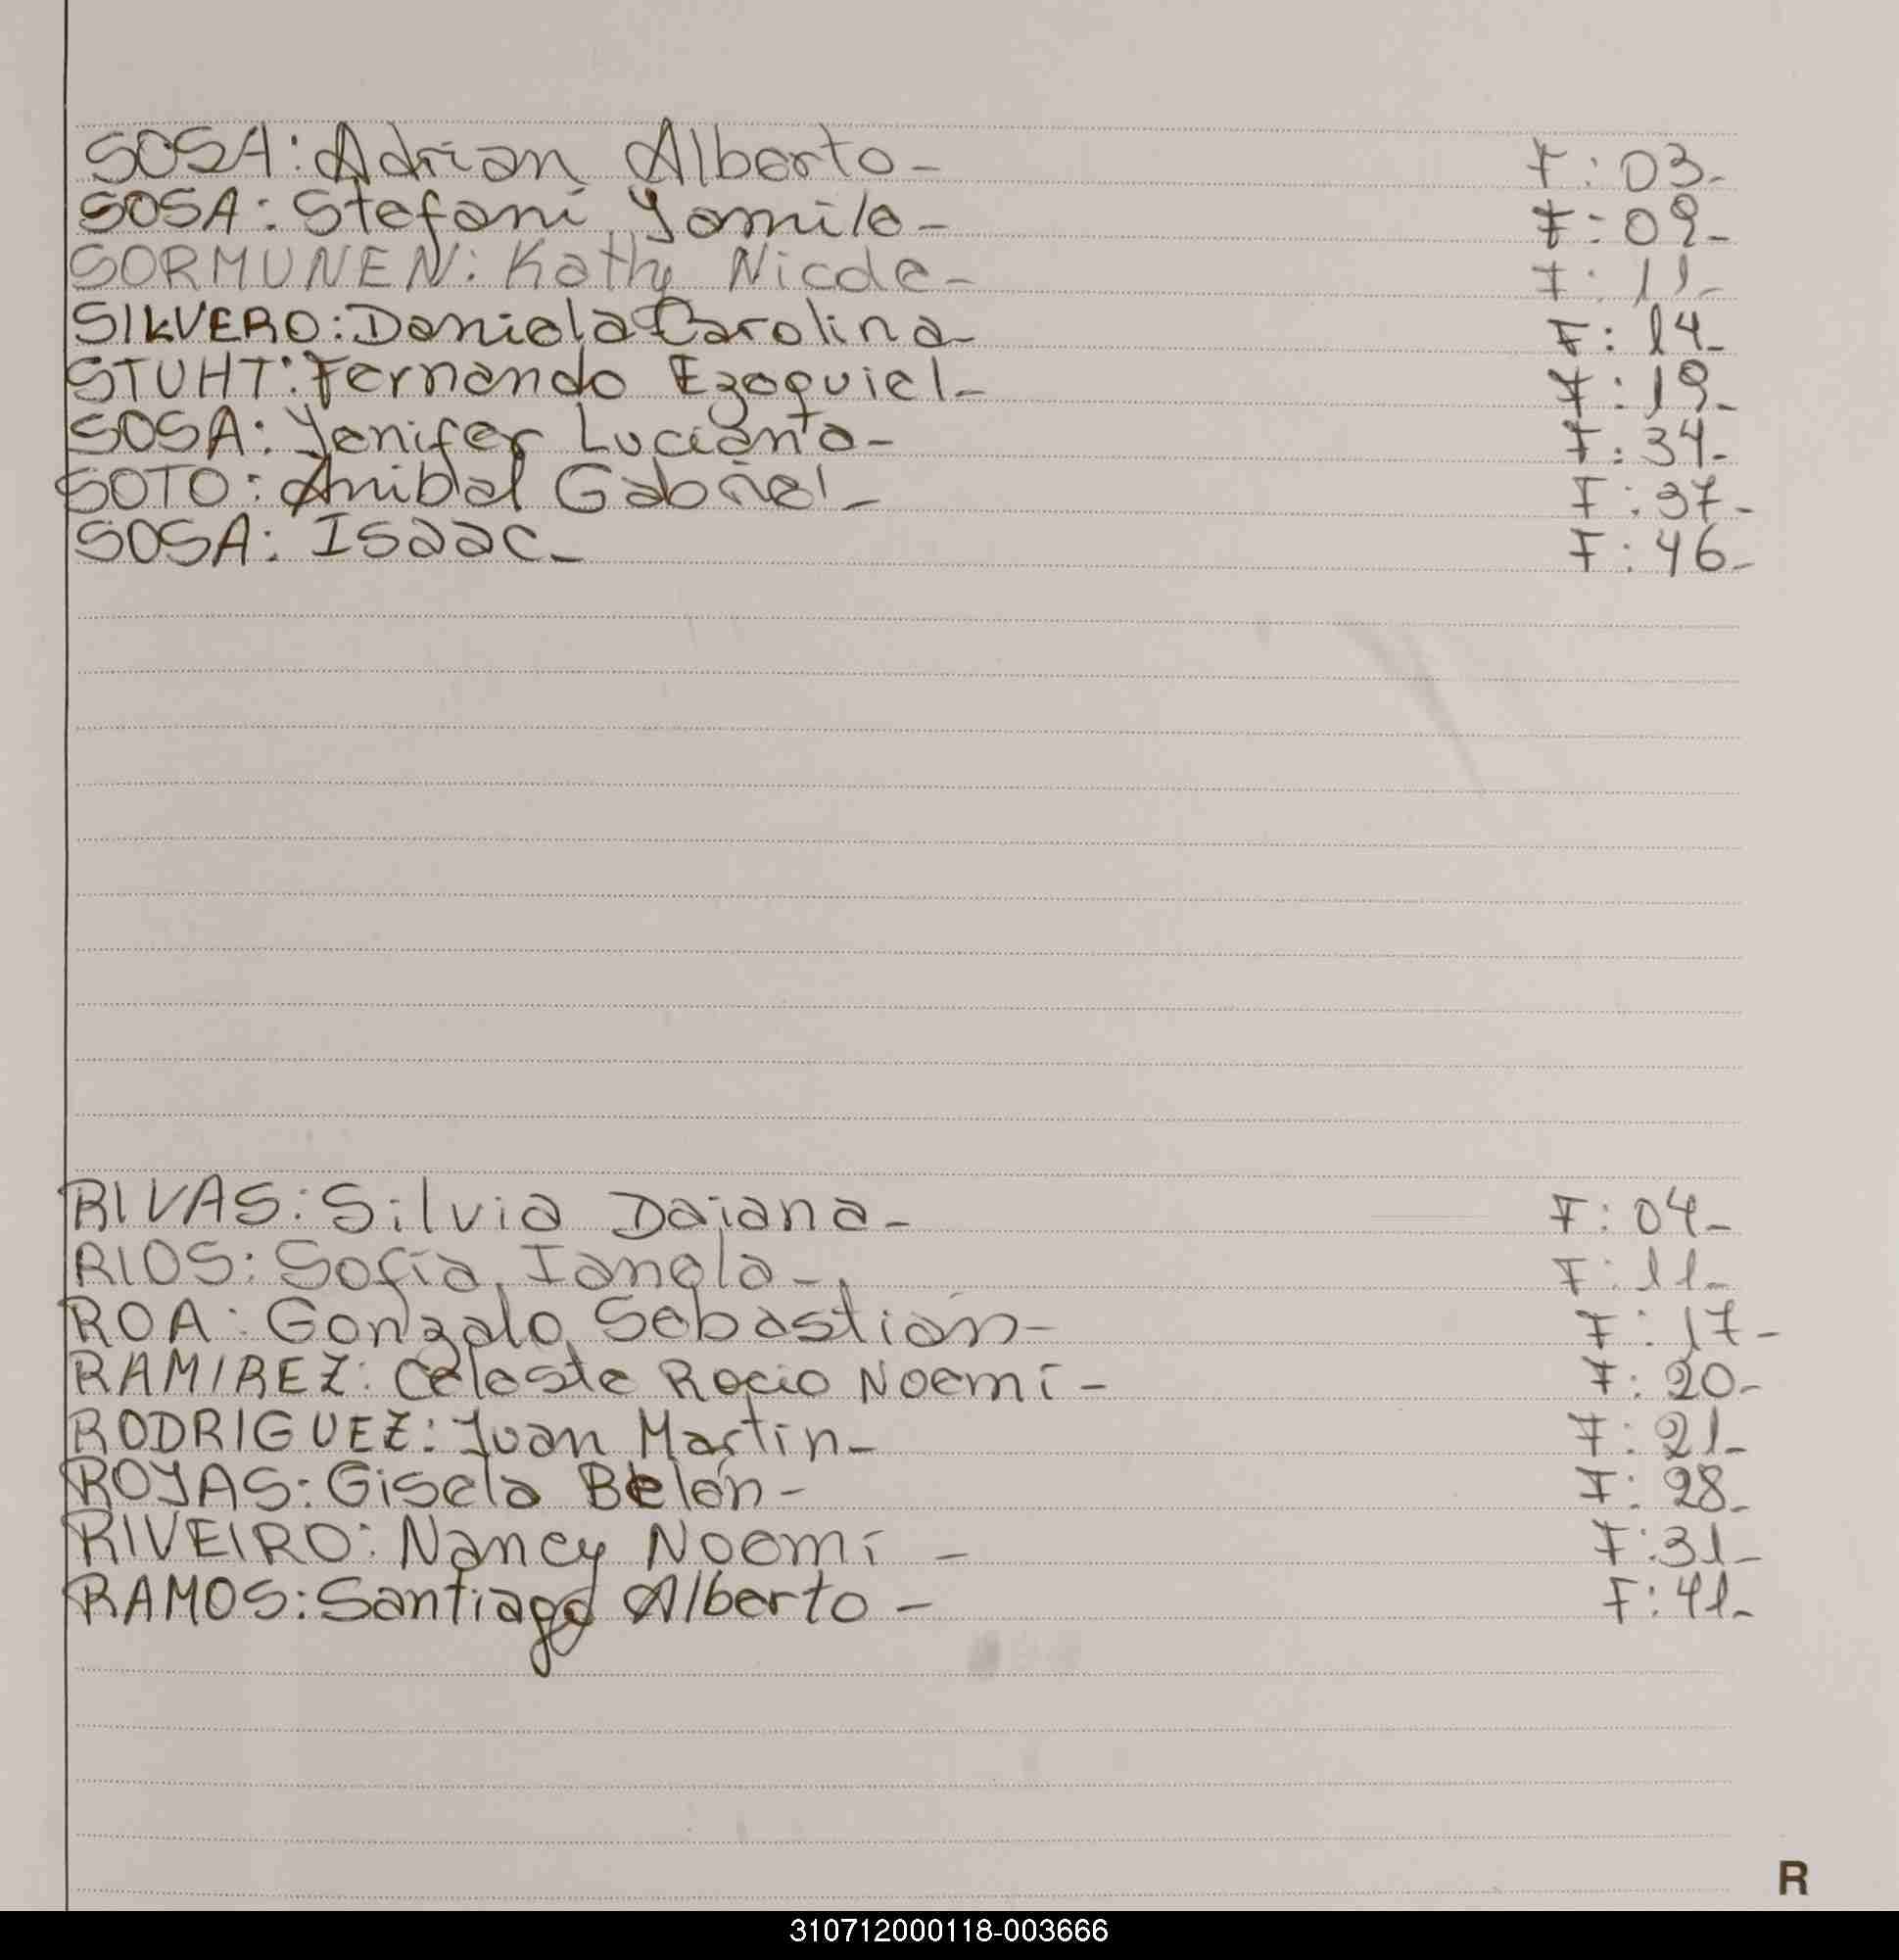 SOSA: Adrian Alberto- F:03-
SOSA: Stefani Yamila- F:09-
SORMUNEN: Kathy Nicole- F:11-
SILVERO: Daniela Carolina- F:14-
STUHT: Fernando Ezequiel- F:19-
SOSA: Yenifer Luciana- F:34-
SOTO: Anibal Gabriel- F:37-
SOSA: Isaac- F:46-
RIVAS: Silvia Daiana- F:04-
RIOS: Sofía Ianela- F:11-
ROA: Gonzalo Sebastián- F:17-
RAMIREZ: Celeste Rocio Noemí- F:20-
RODRIGUEZ: Juan Martin- F:21-
ROJAS: Gisela Belén- F:28-
RIVEIRO: Nancy Noemí- F:31-
RAMOS: Santiago Alberto- F:41-
R
310712000118-003666